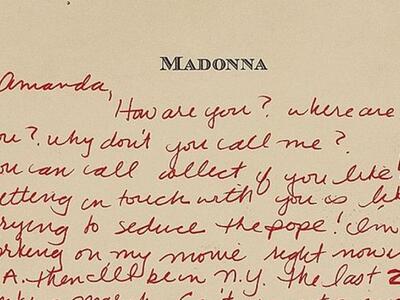 MADONNA
Amanda,
How are you? where are
ou? why don't you call me?
ou can call collect if you like!
etting in touch with you is li
rying to seduce the pope! I'm
orking on my movie right now i
A. then I'll be in N.Y. the last 2